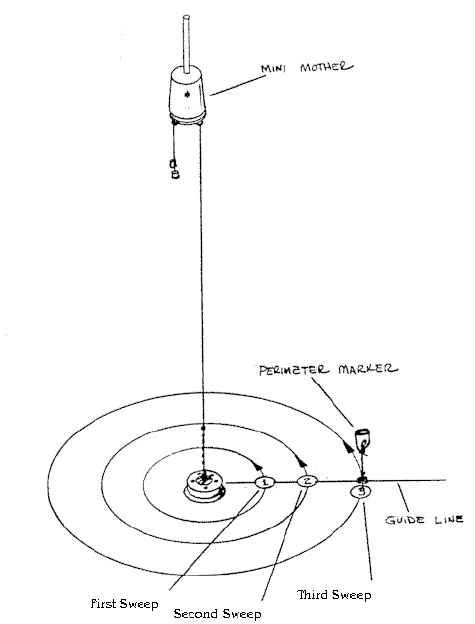 MINI MOTHER
PERIMETER MARKER
1
2
3
GUIDE LINE
First Sweep
Second Sweep
Third Sweep